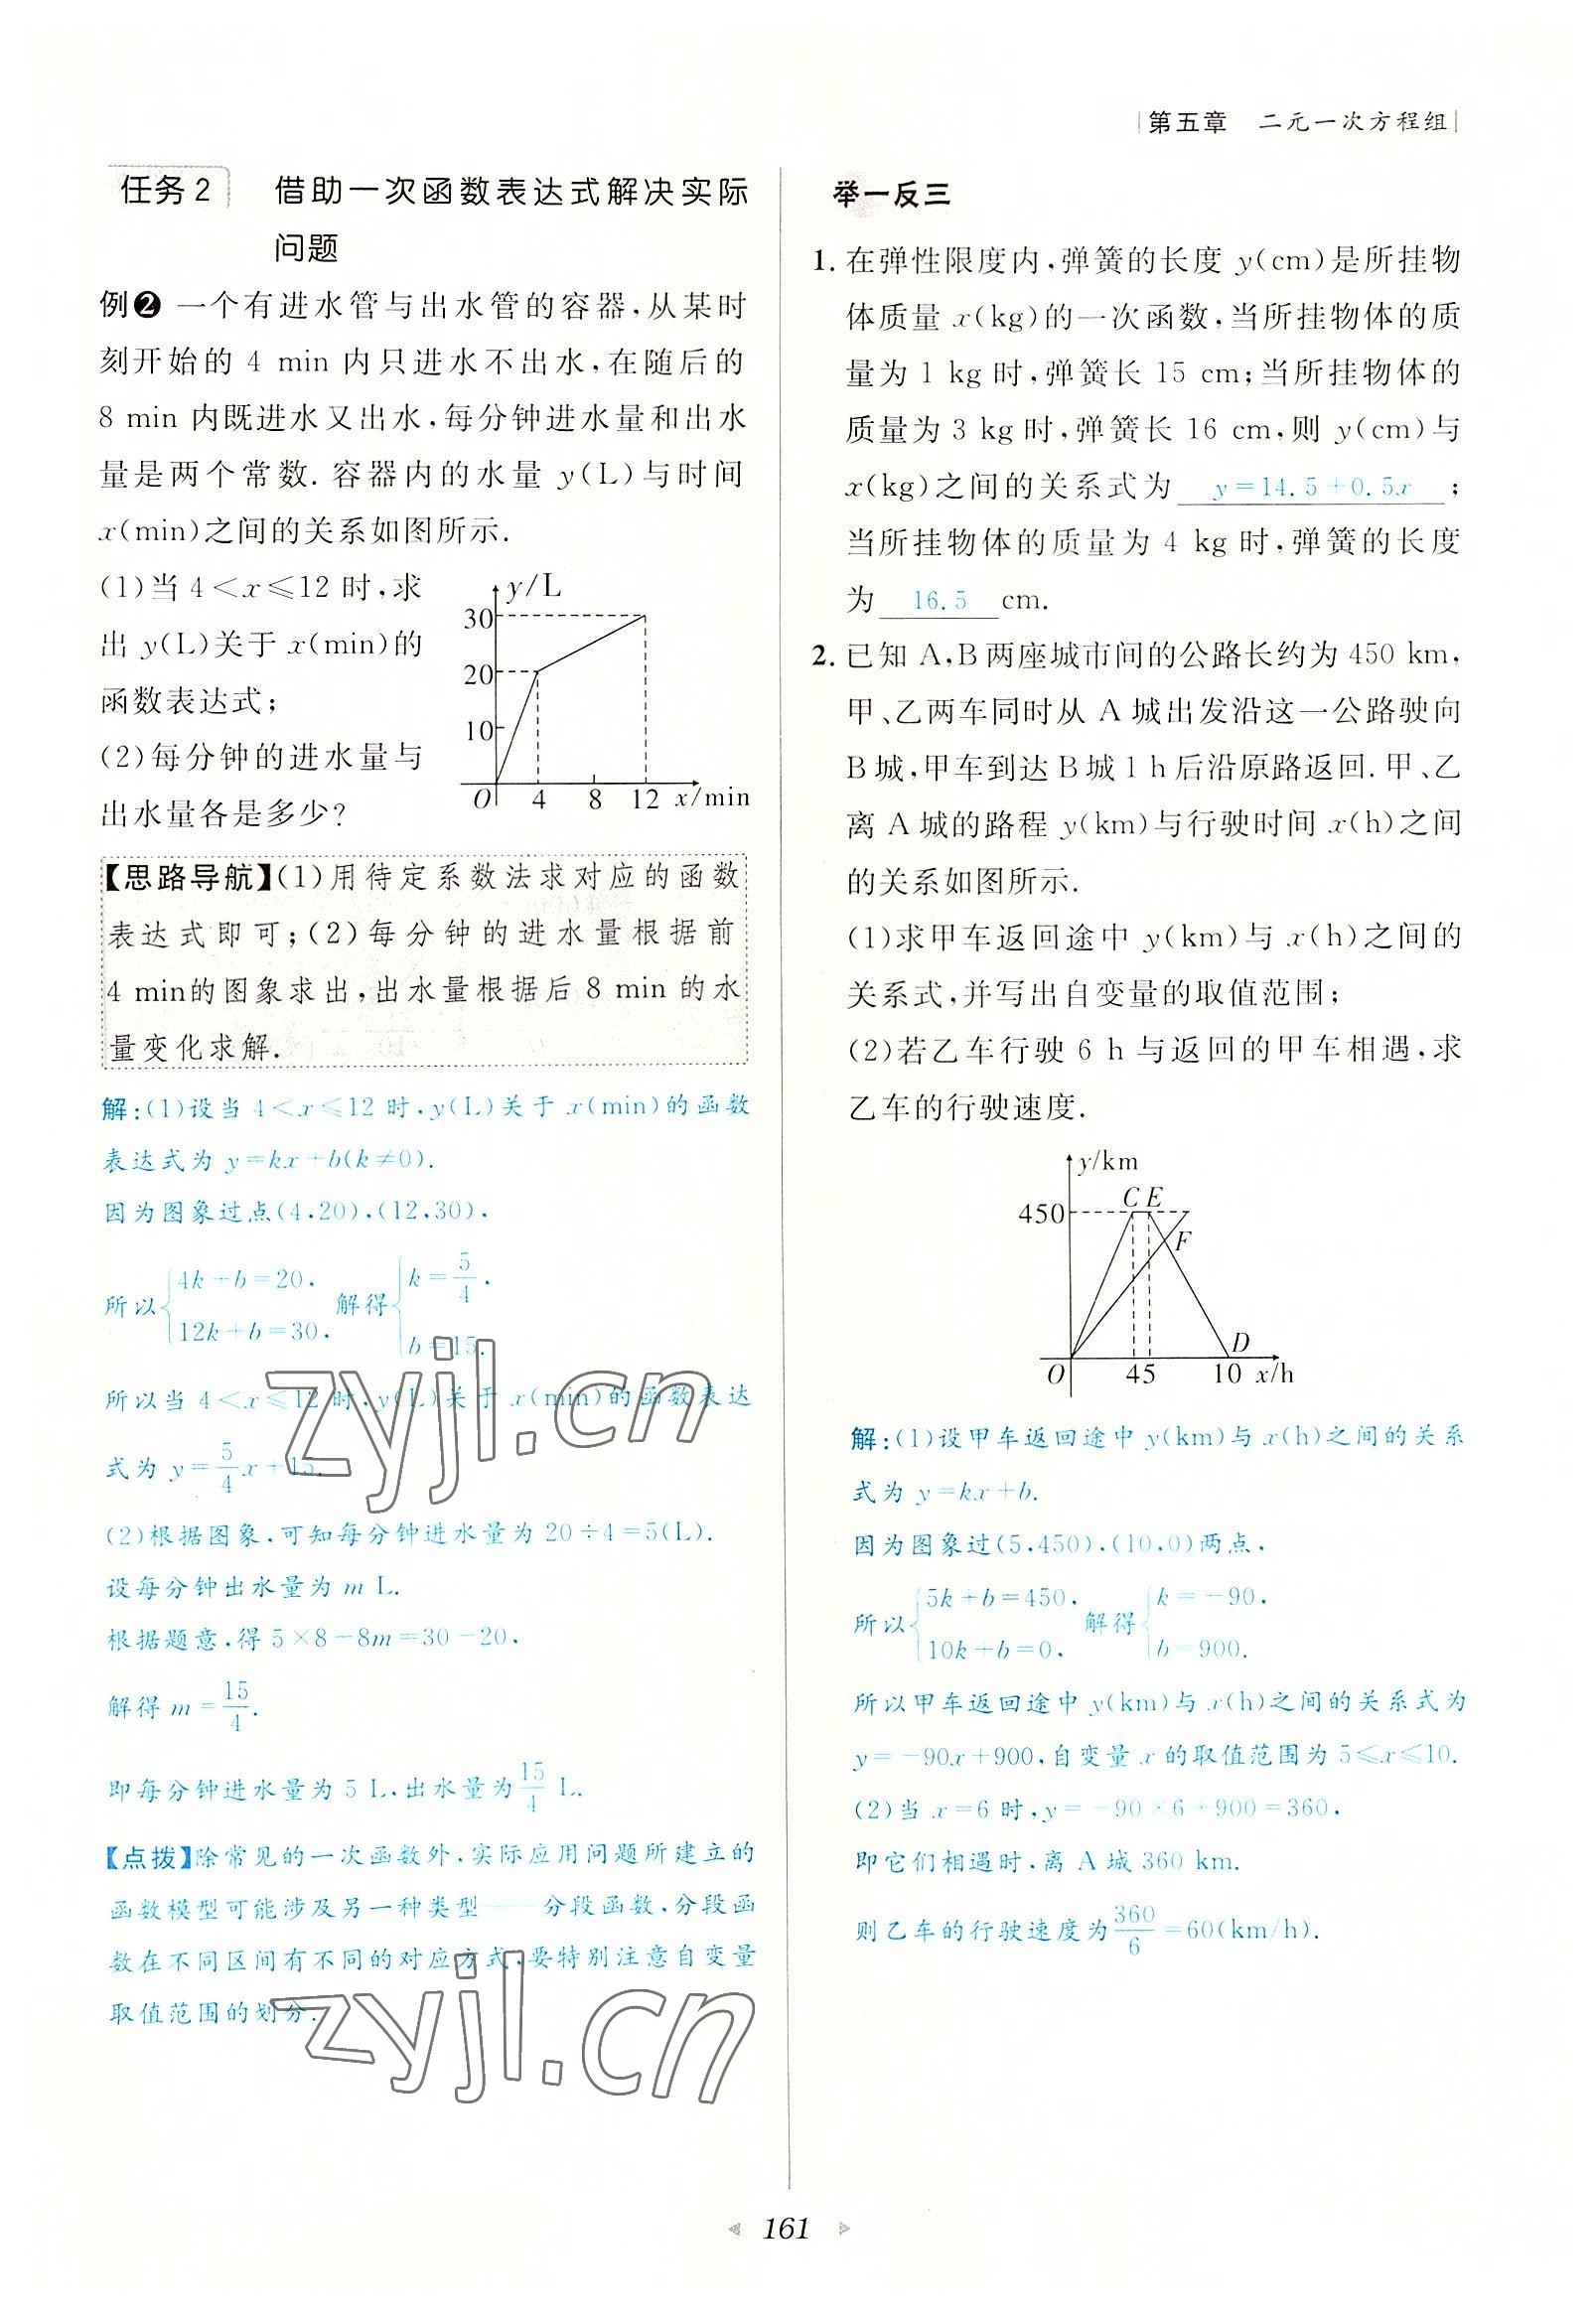 第五章 二元一次方程组
任务2 借助一次函数表达式解决实际
问题
例❷ 一个有进水管与出水管的容器,从某时
刻开始的 4 min 内只进水不出水,在随后的
8 min 内既进水又出水,每分钟进水量和出水
量是两个常数. 容器内的水量 y(L)与时间
x(min)之间的关系如图所示.
(1)当 4<x≤12 时,求
出 y(L)关于 x(min)的
函数表达式;
(2)每分钟的进水量与
出水量各是多少?
y/L
30
20
10
O 4 8 12 x/min
【思路导航】(1)用待定系数法求对应的函数
表达式即可;(2)每分钟的进水量根据前
4 min的图象求出,出水量根据后 8 min 的水
量变化求解.
解:(1)设当 4<x≤12 时,y(L)关于 x(min)的函数
表达式为 y=kx+b(k≠0).
因为图象过点(4,20),(12,30),
所以{4k+b=20, 12k+b=30, 解得{k=5/4, b=15.
所以当 4<x≤12 时,y(L)关于 x(min)的函数表达
式为 y=5/4x+15.
(2)根据图象,可知每分钟进水量为 20÷4=5(L).
设每分钟出水量为 m L.
根据题意,得 5×8-8m=30-20,
解得 m=15/4.
即每分钟进水量为 5 L,出水量为15/4 L.
【点拨】除常见的一次函数外,实际应用问题所建立的
函数模型可能涉及另一种类型——分段函数,分段函
数在不同区间有不同的对应方式,要特别注意自变量
取值范围的划分.
举一反三
1. 在弹性限度内,弹簧的长度 y(cm)是所挂物
体质量 x(kg)的一次函数,当所挂物体的质
量为 1 kg 时,弹簧长 15 cm;当所挂物体的
质量为 3 kg 时,弹簧长 16 cm,则 y(cm)与
x(kg)之间的关系式为 y=14.5+0.5x ;
当所挂物体的质量为 4 kg 时,弹簧的长度
为 16.5 cm.
2. 已知 A,B两座城市间的公路长约为 450 km,
甲、乙两车同时从 A 城出发沿这一公路驶向
B城,甲车到达B城1 h后沿原路返回. 甲、乙
离 A城的路程 y(km)与行驶时间 x(h)之间
的关系如图所示.
(1)求甲车返回途中 y(km)与 x(h)之间的
关系式,并写出自变量的取值范围;
(2)若乙车行驶 6 h 与返回的甲车相遇,求
乙车的行驶速度.
y/km
C E
450
F
D
O 45 10 x/h
解:(1)设甲车返回途中 y(km)与 x(h)之间的关系
式为 y=kx+b.
因为图象过(5,450),(10,0)两点,
所以{5k+b=450, 10k+b=0, 解得{k=-90, b=900.
所以甲车返回途中 y(km)与 x(h)之间的关系式为
y=-90x+900,自变量 x 的取值范围为 5≤x≤10.
(2)当 x=6 时,y=-90×6+900=360,
即它们相遇时,离 A 城 360 km.
则乙车的行驶速度为360/6=60(km/h).
zyjl.cn
zyjl.cn
161